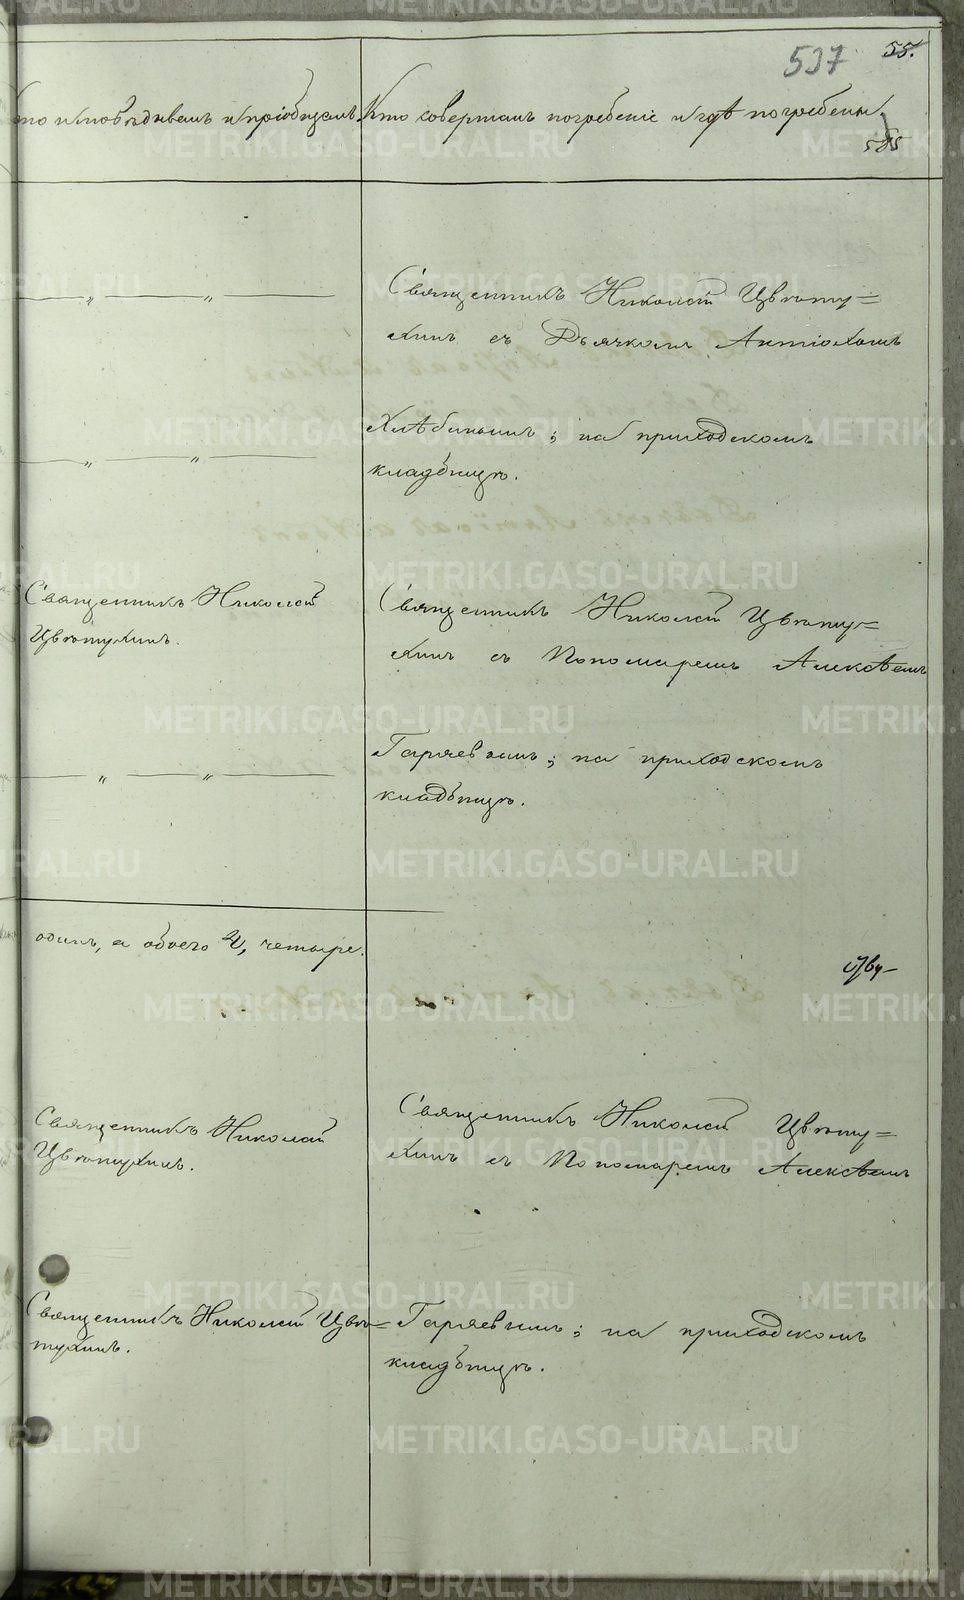 537 55.
кто исповѣдывалъ и пріобщалъ. Кто совершалъ погребеніе и гдѣ погребены.
585
Священникъ Николай Цвѣту=
хинъ съ Дьячкомъ Антіохомъ
Хлѣбинымъ; на приходскомъ
кладбищѣ.
Священникъ Николай
Цвѣтухинъ.
Священникъ Николай Цвѣту=
хинъ съ Пономаремъ Алексѣемъ
Гаряевымъ; на приходскомъ
кладбищѣ.
одинъ, а обоего 4, четыре.
Священникъ Николай
Цвѣтухинъ.
Священникъ Николай Цвѣту=
хинъ съ Пономаремъ Алексѣемъ
Священникъ Николай Цвѣ=
тухинъ.
Гаряевымъ; на приходскомъ
кладбищѣ.
METRIKI.GASO-URAL.RU